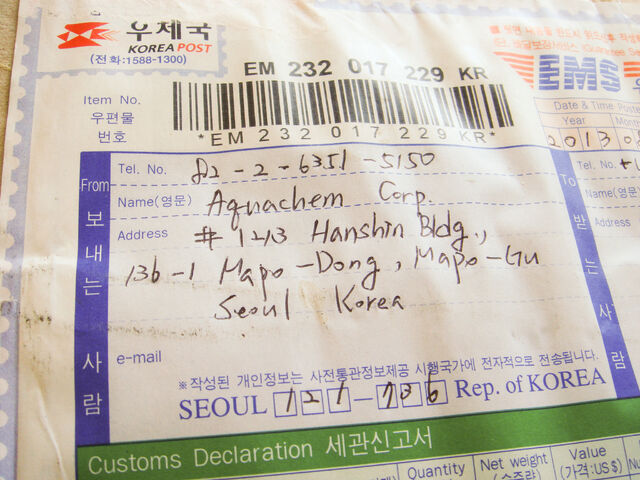 우체국
KOREA POST
(전화:1588-1300)
EM 232 017 229 KR
Item No.
우편물
번호
*EM 232 017 229 KR*
EMS
Date & Time Posted
Year
2013
From 보내는 사람
Tel. No. 82-2-6351-5150
Name(영문) Aquachem Corp.
Address # 1213 Hanshin Bldg.,
136-1 Mapo-Dong, Mapo-Gu
Seoul Korea
e-mail
※작성된 개인정보는 사전통관정보제공 시행국가에 전자적으로 전송됩니다.
SEOUL 121-736 Rep. of KOREA
To 받는 사람
Tel. No.
Name(영문)
Address
Customs Declaration 세관신고서
Quantity
Net weight
Value
(가격:US$)